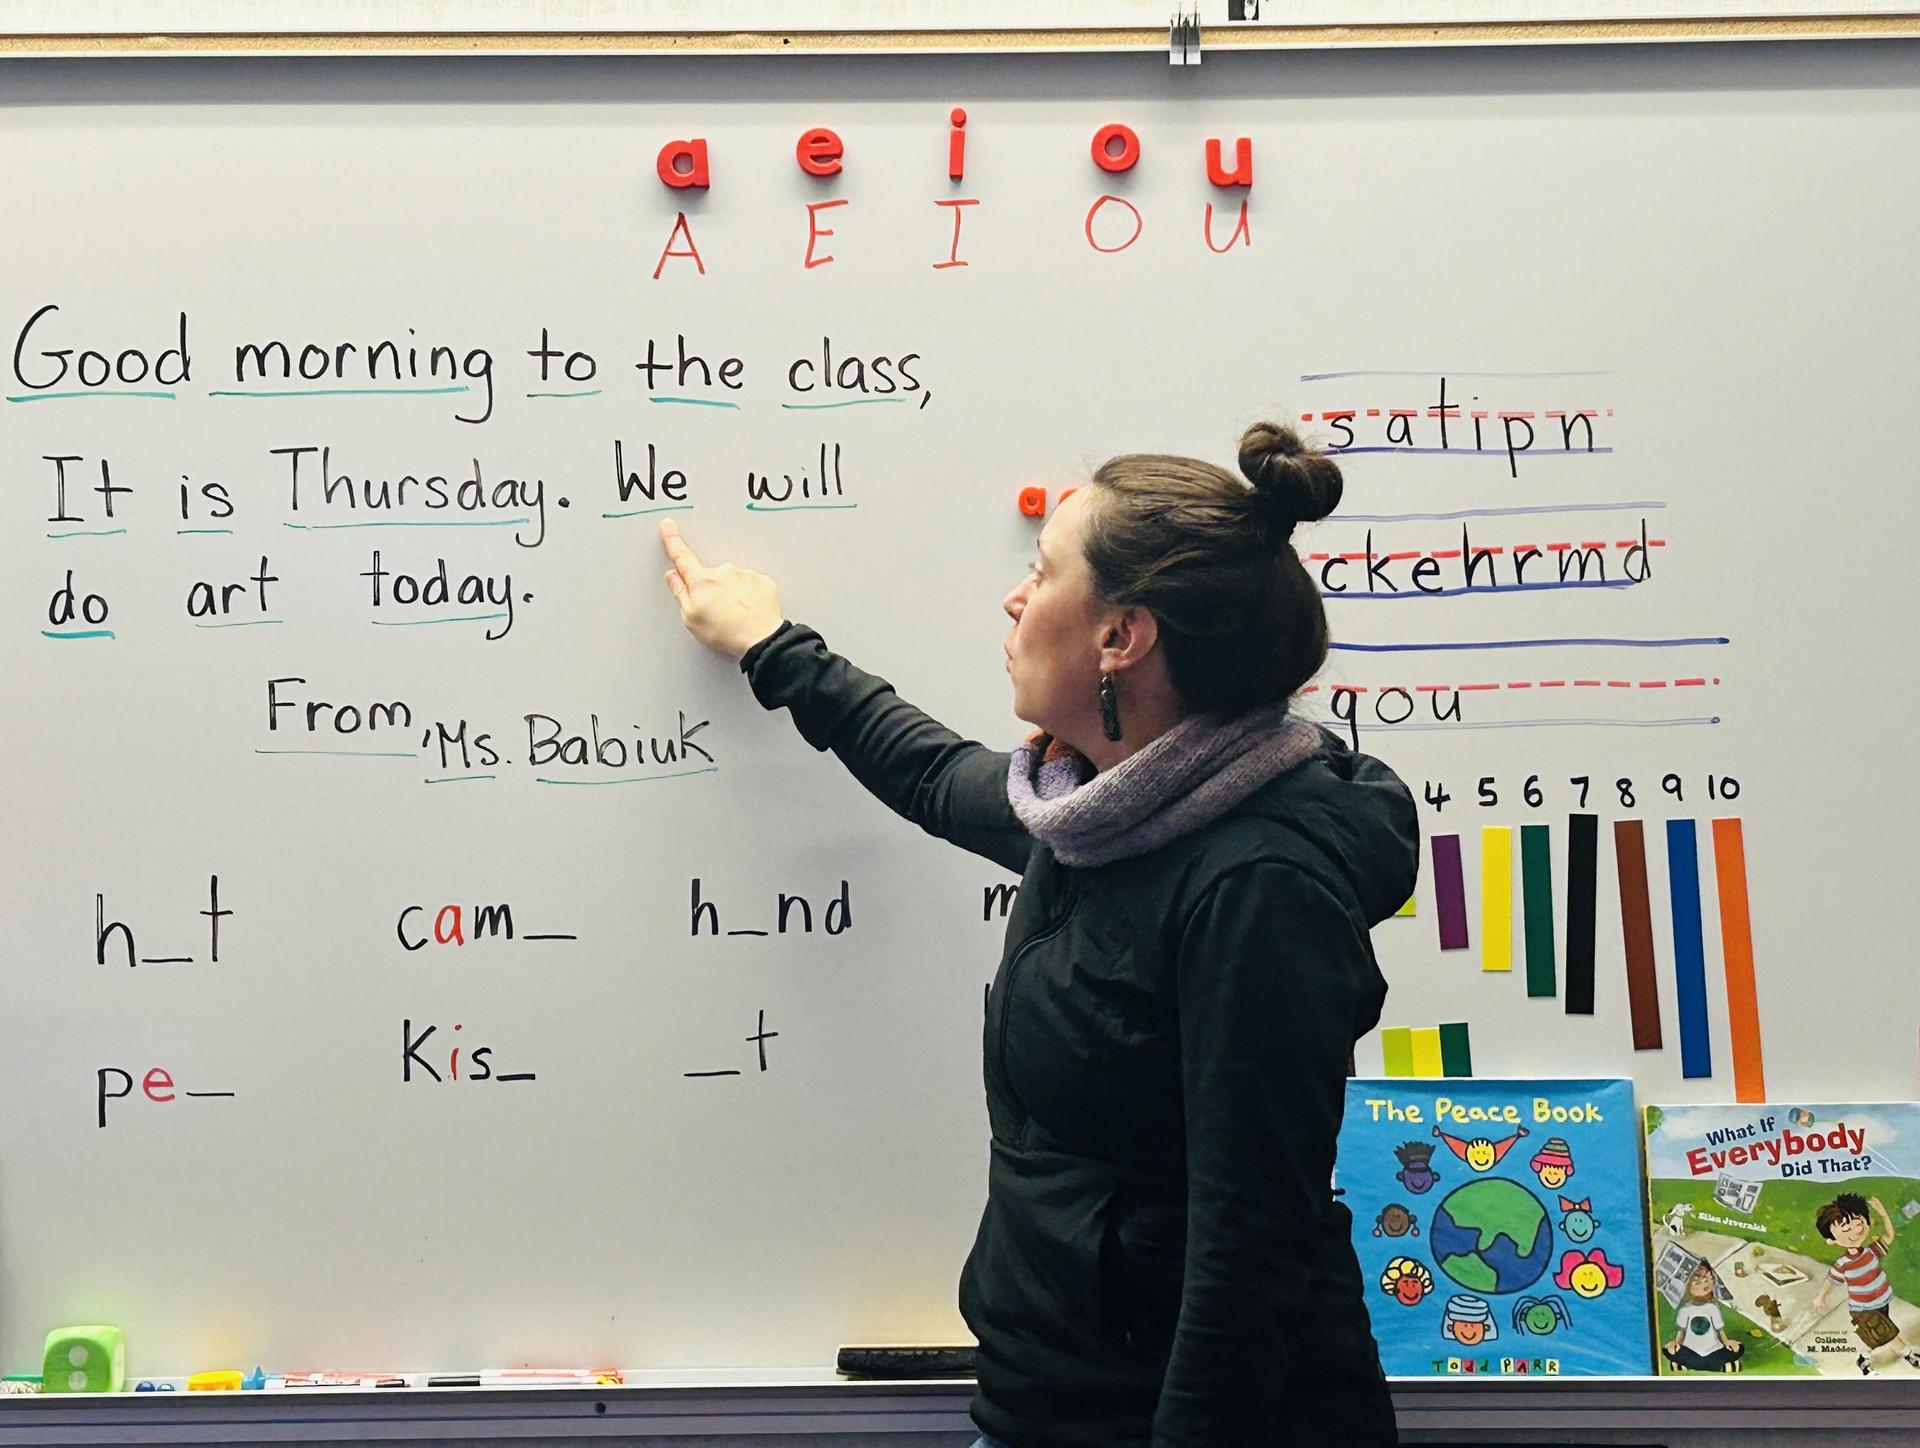 a e i o u
A E I O U
Good morning to the class,
It is Thursday. We will
do art today.
From, Ms. Babiuk
s a t i p n
c k e h r m d
g o u
4 5 6 7 8 9 10
h_t cam_ h_nd
pe_ Kis_ _t
The Peace Book
TODD PARR
What If
Everybody
Did That?
Ellen Javernick
Colleen
M. Madden